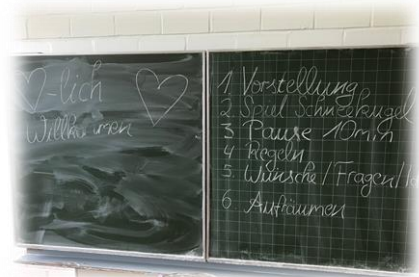 ♡-lich
Willkommen
1. Vorstellung
2 Spiel Schneekugel
3 Pause 10min
4 Regeln
5. Wünsche/Fragen/
6 Aufräumen